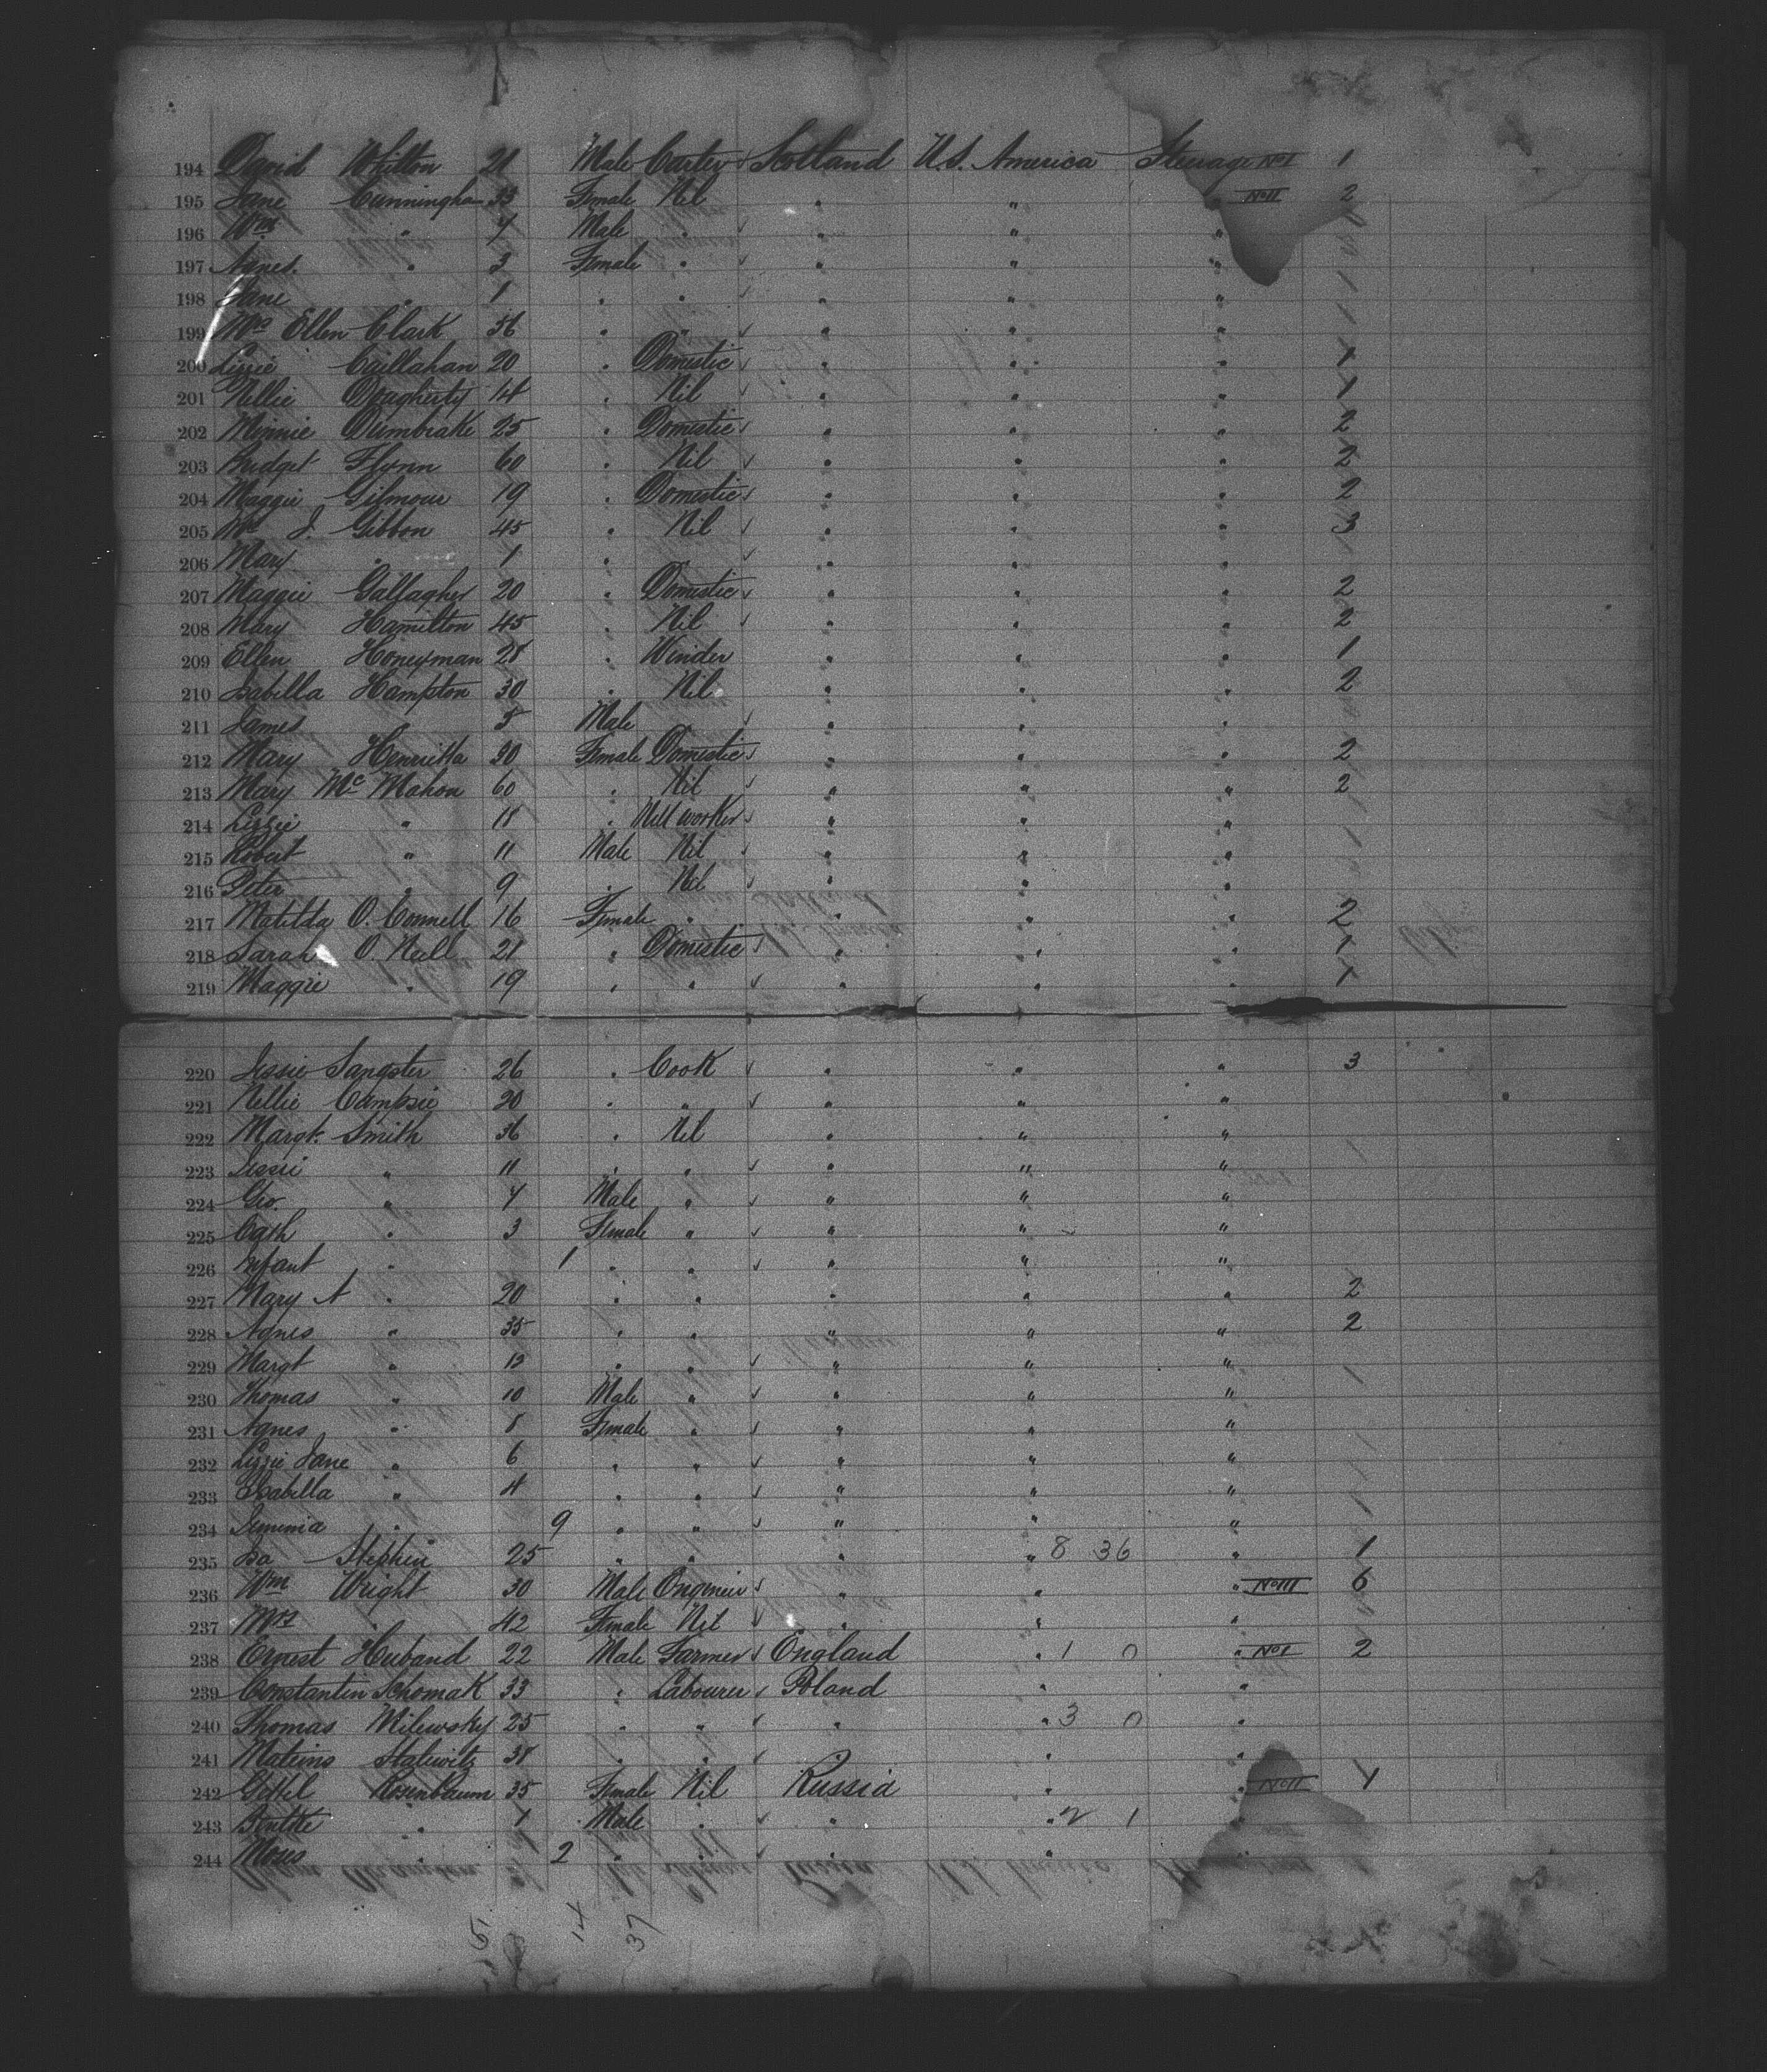 194 David Whitton 21 Male Carter Scotland U.S. America Steerage No I 1
195 Jane Cunningha 33 Female Nil " " " No II 2
196 Wm " 7 Male " " " "
197 Agnes " 3 Female " " " "
198 Jane " 1 " " " " "
199 Mrs Ellen Clark 56 " " " " "
200 Lizzie Callahan 20 " Domestic " " " 1
201 Nellie Dougherty 14 " Nil " " " 1
202 Minnie Dumbrake 25 " Domestic " " " 2
203 Bridget Flynn 60 " Nil " " " 2
204 Maggie Gilmour 19 " Domestic " " " 2
205 Mrs J. Gibbon 45 " Nil " " " 3
206 Mary " 1 " " " "
207 Maggie Gallagher 20 " Domestic " " " 2
208 Mary Hamilton 45 " Nil " " " 2
209 Ellen Honeyman 28 " Winder " " " 1
210 Isabella Hampton 30 " Nil " " " 2
211 James " 5 Male " " "
212 Mary Henrietta 30 Female Domestic " " " 2
213 Mary Mc Mahon 60 " Nil " " " 2
214 Lizzie " 18 " Mill worker " " "
215 Robert " 11 Male Nil " " "
216 Peter " 9 " Nil " " "
217 Matilda O. Connell 16 Female " " " " 2
218 Sarah O. Neill 21 " Domestic " " " 1
219 Maggie " 19 " " " " " 1
220 Jessie Sangster 26 " Cook " " " 3
221 Nellie Campsie 20 " " " " "
222 Margt. Smith 36 " Nil " " "
223 Jessie " 11 " " " " "
224 Geo. " 7 Male " " " "
225 Cath " 3 Female " " " "
226 Infant " 1 " " " " "
227 Mary A " 20 " " " " " 2
228 Agnes " 35 " " " " " 2
229 Margt " 13 " " " " "
230 Thomas " 10 Male " " " "
231 Agnes " 8 Female " " " "
232 Lizzie Jane " 6 " " " " "
233 Isabella " 4 " " " " "
234 Jemima " 9 " " " " "
235 Isa Stephen 25 " " " " 8 36 " 1
236 Wm Wright 30 Male Engineer " " " No III 6
237 Mrs " 42 Female Nil " " "
238 Ernest Huband 22 Male Farmer England " 1 0 " No I 2
239 Constantin Schomak 33 " Labourer Poland " "
240 Thomas Milewsky 25 " " " " 3 0 "
241 Stalewitz 38 " " " " "
242 Rosenbaum 35 Female Nil Russia " " No II 4
243 " 1 Male " " " 2 1
244 Moses 2 " " " "
14 37